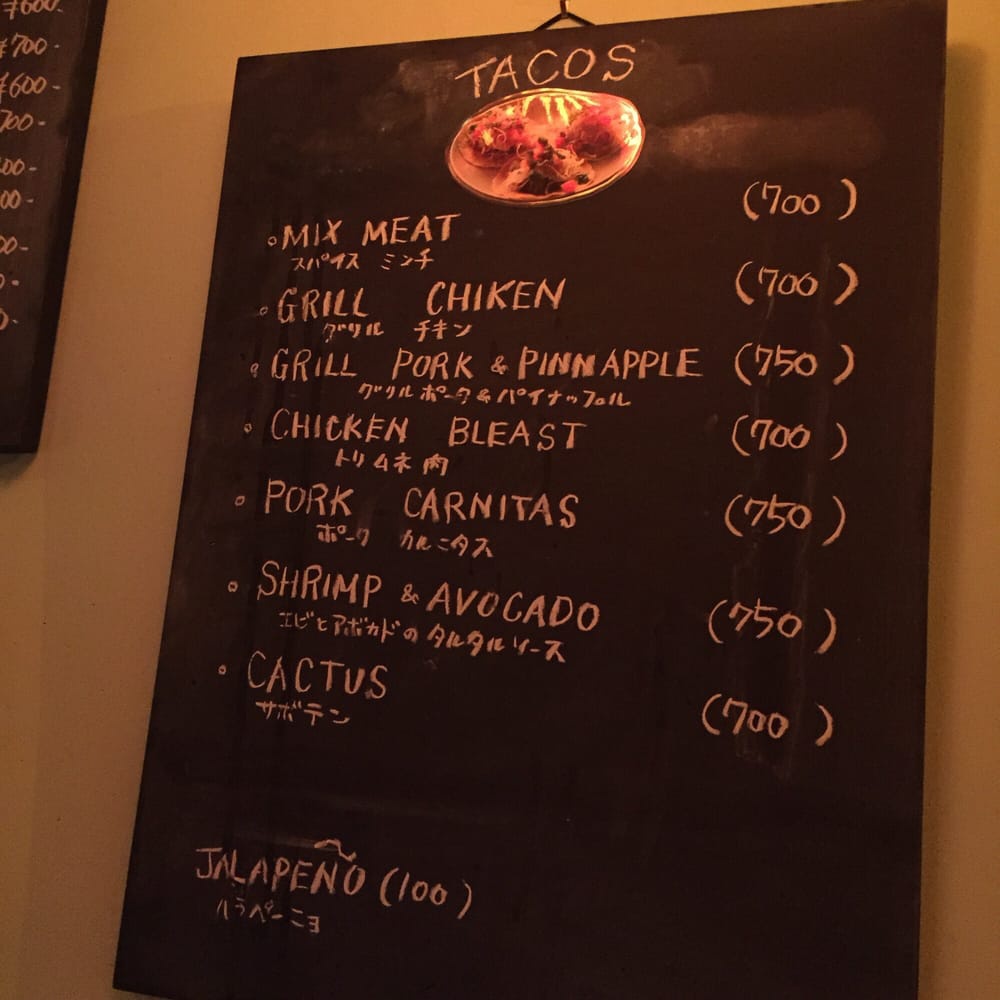 ¥600-
¥700-
¥600-
700-
TACOS
MIX MEAT (700)
スパイス ミンチ
GRILL CHIKEN (700)
グリル チキン
GRILL PORK & PINNAPPLE (750)
グリルポーク&パイナップル
CHICKEN BLEAST (700)
トリムネ肉
PORK CARNITAS (750)
ポーク カルニタス
SHRIMP & AVOCADO (750)
エビとアボカドのタルタルソース
CACTUS (700)
サボテン
JALAPEÑO (100)
ハラペーニョ